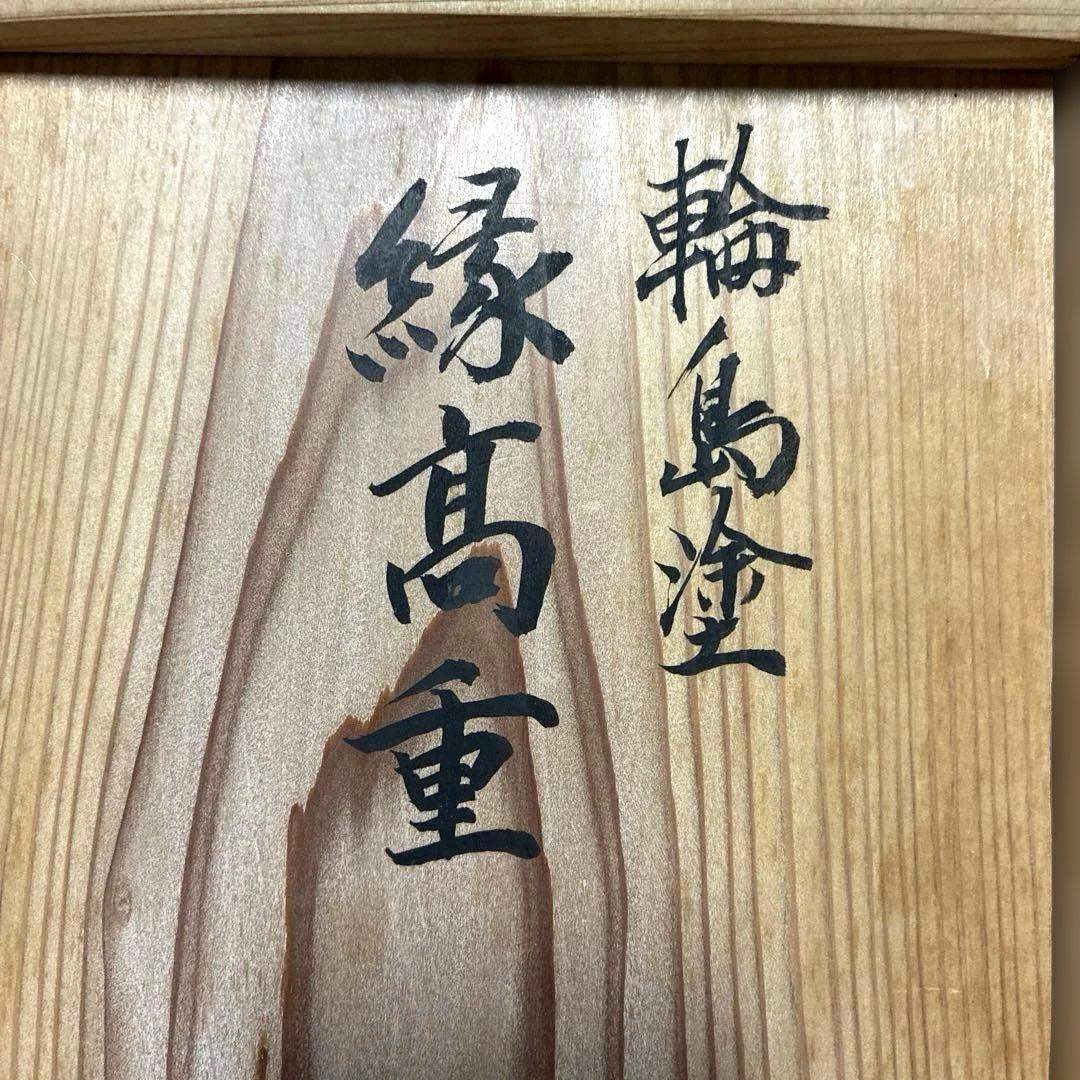 輪島塗
縁髙重